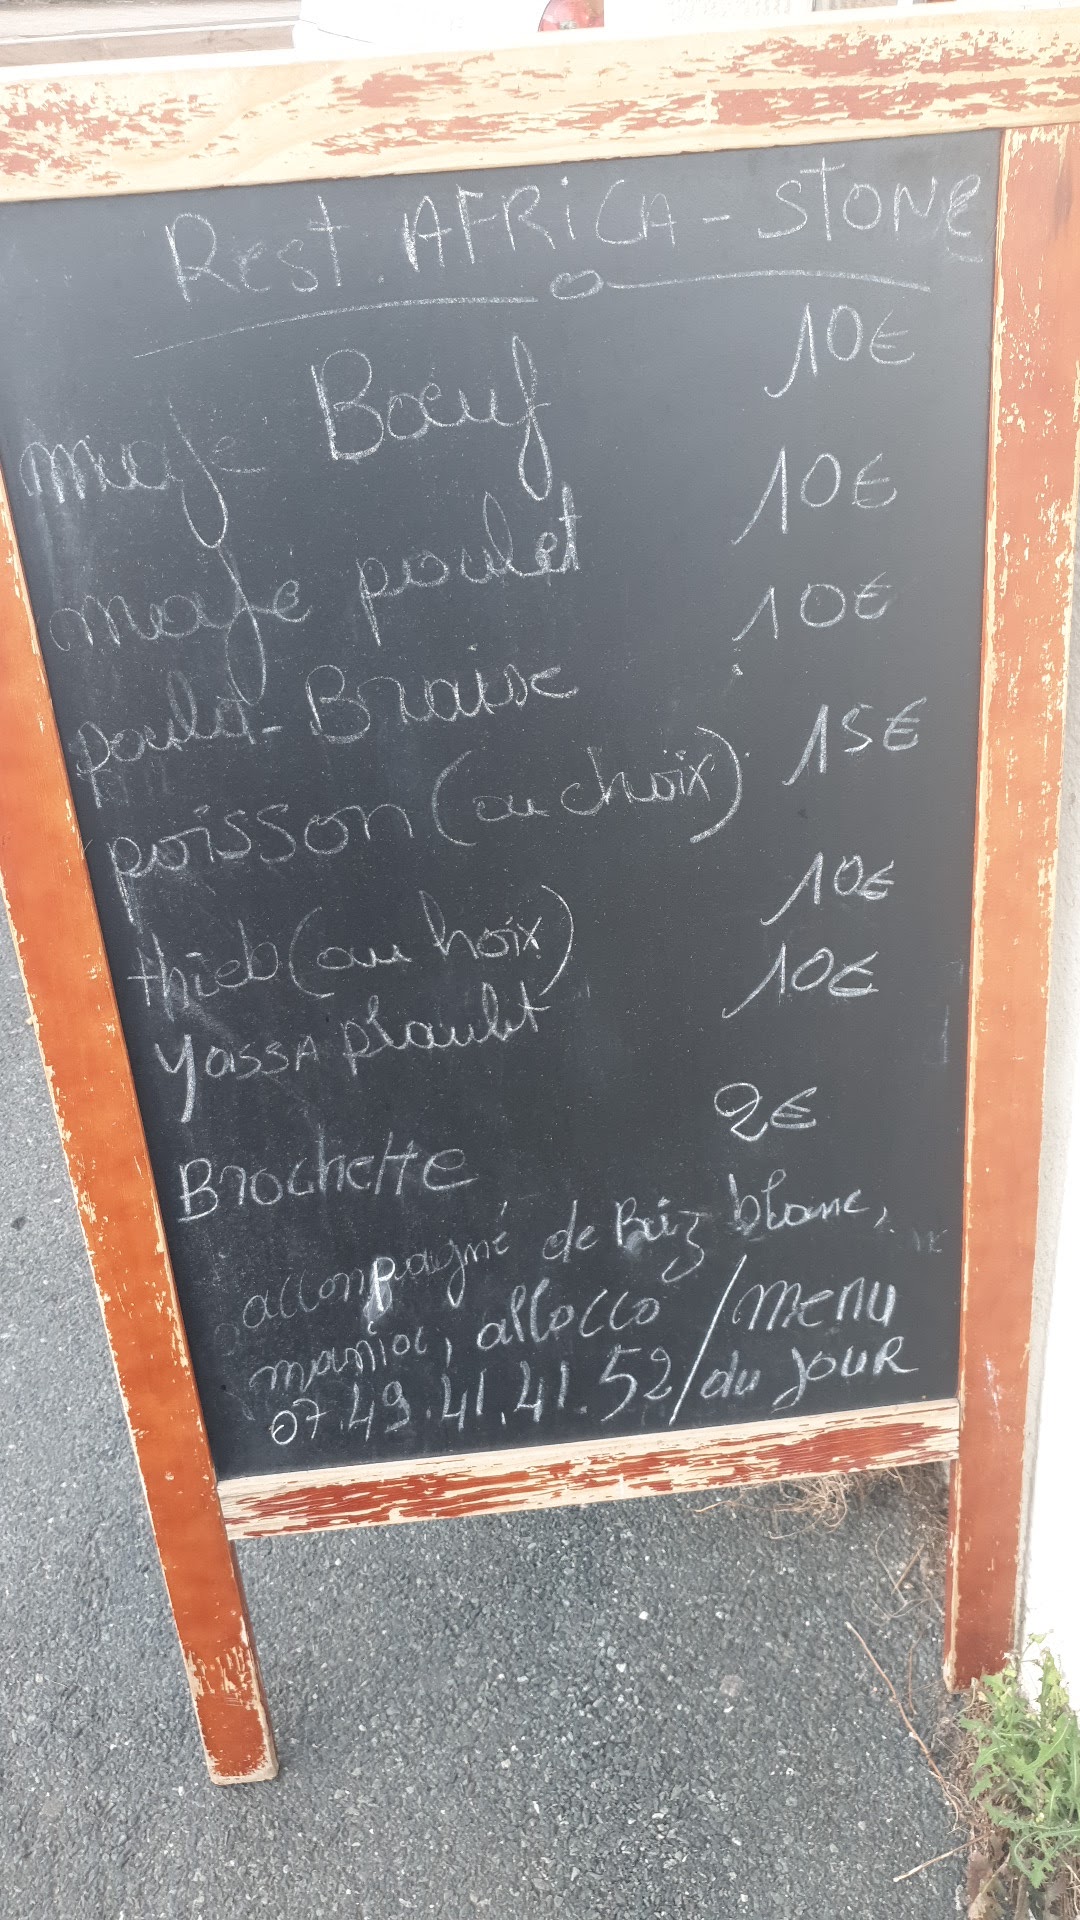 Rest. AFRiCA - STONE
mafe Bœuf 10€
mafe poulet 10€
poulet - Braise 10€
poisson (au choix) 15€
thieb (au hoix) 10€
YASSA poulet 10€
Brochette 2€
accompagné de Riz blanc,
manioc, allocco / menu
07.49.41.41.52 / du JOUR